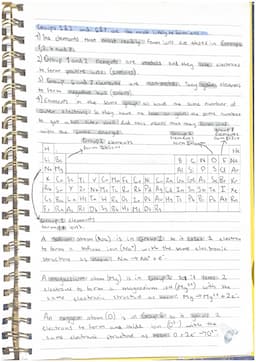 Groups 1&2 and 6&7 are the most likely to form ions
1) The elements that most readily form ions are those in Groups
1, 2, 6 and 7
2) Group 1 and 2 elements are metals and they lose electrons
to form positive ions (cations)
3) Group 6 and 7 elements are non-metals. They gain electrons
to form negative ions (anions)
4) Elements in the same group all have the same number of
outer electrons. So they have to lose or gain the same number
to get a full outer shell
with the same charge.
Group 6
elements
form 2- ions
group 7
elements
form 1- ions
Group 2 elements
form 2+ ions
H
Li Be B C N O F Ne
Na Mg Al Si P S Cl Ar
K Ca Sc Ti V Cr Mn Fe Co Ni Cu Zn Ga Ge As Se Br Kr
Rb Sr Y Zr Nb Mo Tc Ru Rh Pd Ag Cd In Sn Sb Te I Xe
Cs Ba La Hf Ta W Re Os Ir Pt Au Hg Tl Pb Bi Po At Rn
Fr Ra Ac Rf Db Sg Bh Hs Mt Ds Rg
Group 1 elements
form 1+ ions
A sodium atom (Na) is in Group 1 so it loses 1 electron
to form a sodium ion (Na⁺) with the same electronic
structure as neon: Na → Na⁺ + e⁻
A magnesium atom (Mg) is in Group 2 so it loses 2
electrons to form a magnesium ion (Mg²⁺) with the
same electronic structure as neon: Mg → Mg²⁺ + 2e⁻
An oxygen atom (O) is in Group 6 so it gains 2
electrons to form an oxide ion (O²⁻) with the
same electronic structure as neon: O + 2e⁻ → O²⁻